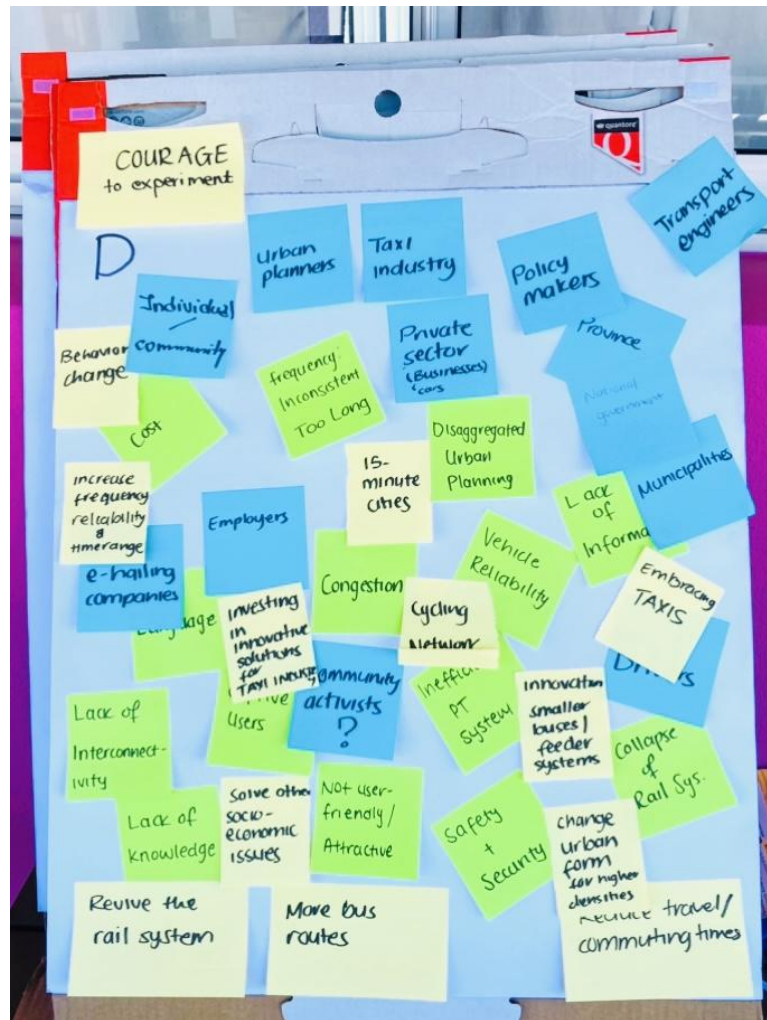 quantore
COURAGE
to experiment
D
Transport
engineers
Urban
planners
Taxi
Industry
Policy
makers
Individual
/
community
Province
Private
sector
(Businesses)
cars
National
government
Behavior
change
Cost
frequency:
Inconsistent
Too Long
Disaggregated
Urban
Planning
15-
minute
cities
Municipalities
increase
frequency
reliability
&
timerange
Employers
Lack
of
Informa
e-hailing
companies
Congestion
Vehicle
Reliability
Embracing
TAXIS
investing
in
innovative
solutions
for
TAXI INDUSTRY
Cycling
Network
Users
community
activists
?
PT
system
innovation
smaller
buses/
feeder
systems
Lack of
Interconnect-
ivity
Collapse
of
Rail Sys.
Lack of
knowledge
Solve other
socio-
economic
issues
Not user-
friendly/
Attractive
Safety
+
Security
change
Urban
form
for higher
densities
Revive the
rail system
More bus
routes
Reduce travel/
commuting times